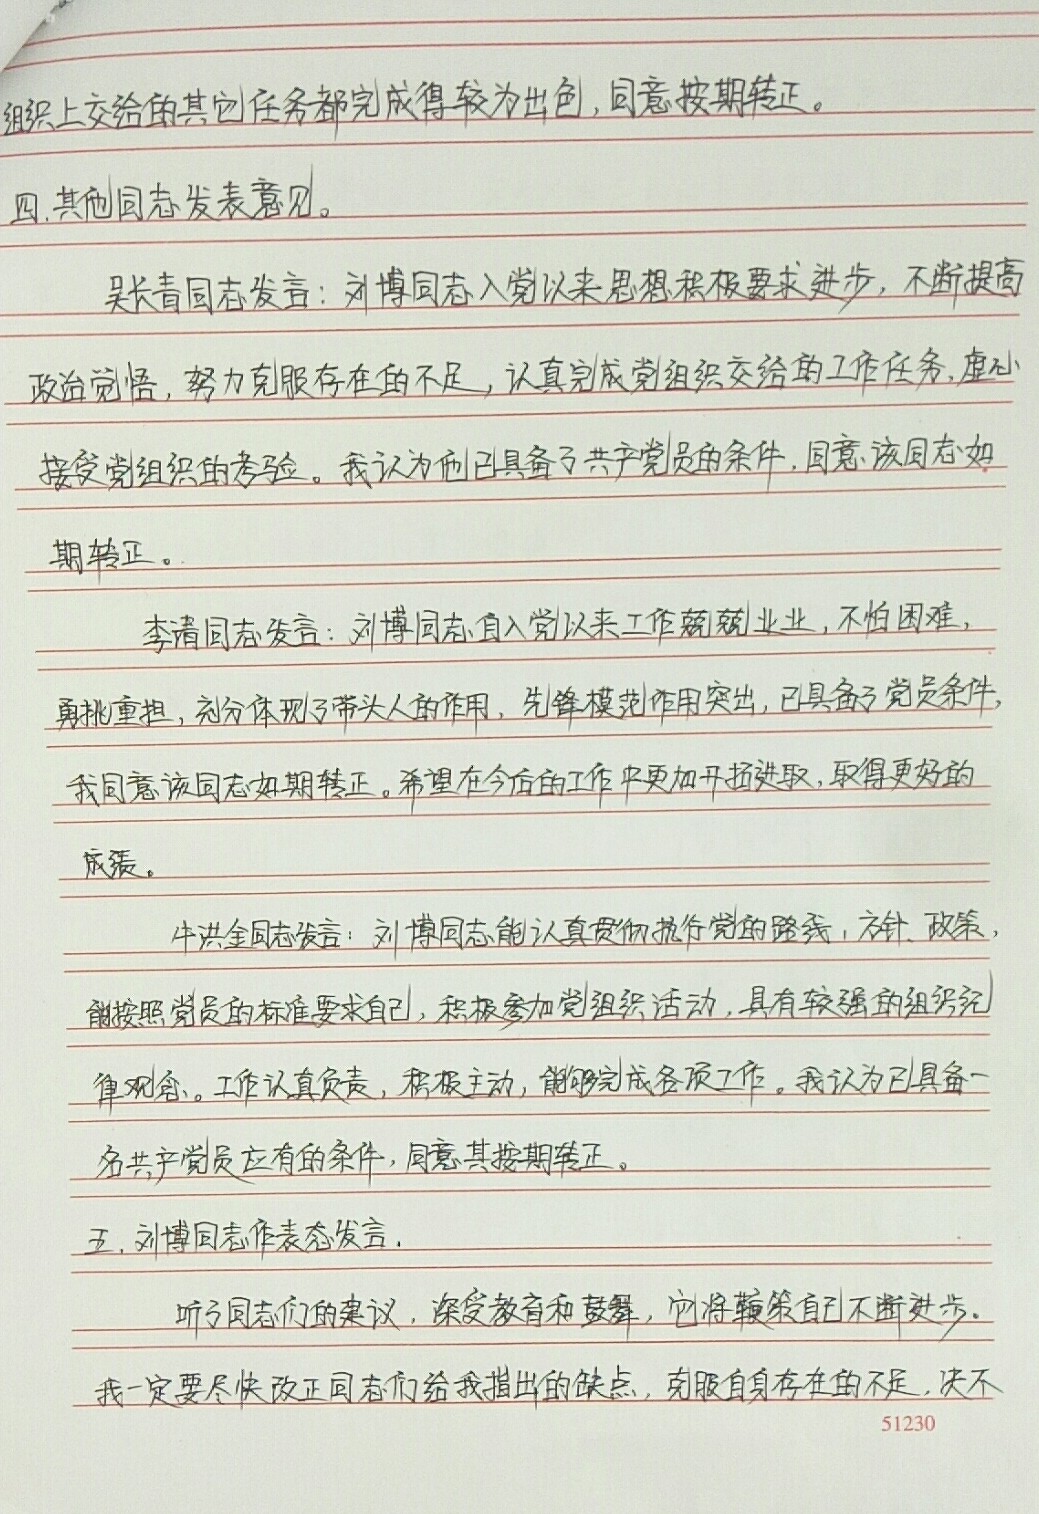 组织上交给的其它任务都完成得较为出色，同意按期转正。
四.其他同志发表意见。
吴长青同志发言：刘博同志入党以来思想积极要求进步，不断提高
政治觉悟，努力克服存在的不足，认真完成党组织交给的工作任务，虚心
接受党组织的考验。我认为他已具备了共产党员的条件，同意该同志如
期转正。
李清同志发言：刘博同志自入党以来工作兢兢业业，不怕困难，
勇挑重担，充分体现了带头人的作用，先锋模范作用突出，已具备了党员条件，
我同意该同志如期转正。希望在今后的工作中更加开拓进取，取得更好的
成绩。
牛洪全同志发言：刘博同志能认真贯彻执行党的路线，方针、政策，
能按照党员的标准要求自己，积极参加党组织活动，具有较强的组织纪
律观念。工作认真负责，积极主动，能够完成各项工作。我认为已具备一
名共产党员应有的条件，同意其按期转正。
五.刘博同志作表态发言.
听了同志们的建议，深受教育和鼓舞，它将鞭策自己不断进步。
我一定要尽快改正同志们给我指出的缺点，克服自身存在的不足，决不
51230